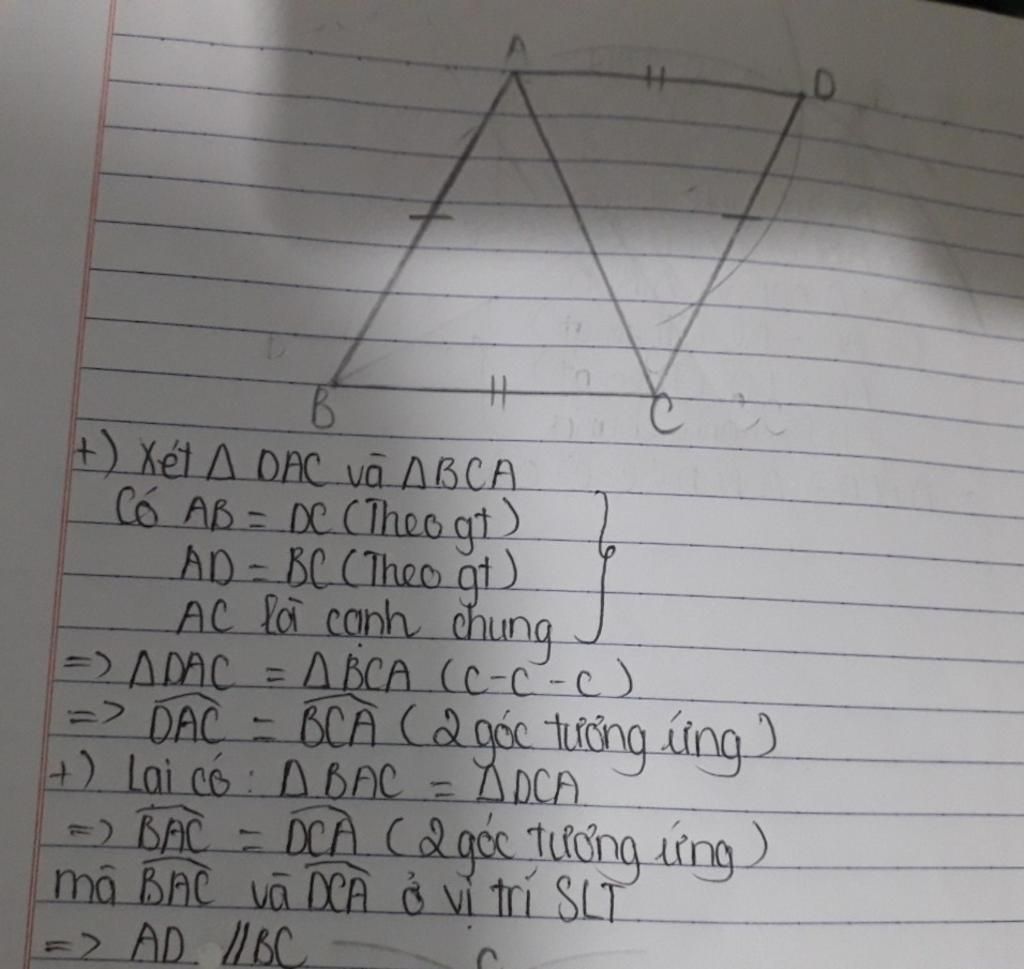 A
D
B
C
+) Xét Δ DAC và ΔBCA
Có AB = DC (Theo gt)
AD = BC (Theo gt)
AC là cạnh chung
=> ΔDAC = ΔBCA (c-c-c)
=> DAC = BCA (2 góc tương ứng)
+) Lại có: Δ BAC = ΔDCA
=> BAC = DCA (2 góc tương ứng)
mà BAC và DCA ở vị trí SLT
=> AD // BC